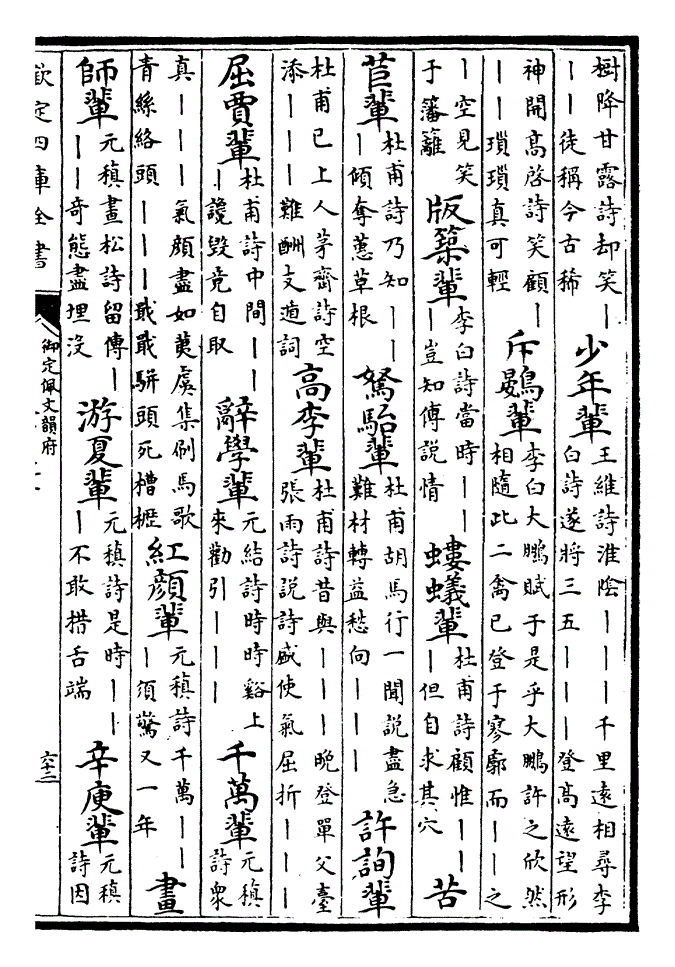 樹降甘露詩却笑丨丨丨徒稱今古稀 少年輩 王維詩淮陰丨丨丨千里遠相尋李白詩遂將三五丨丨丨登高遠望形
神開高啓詩笑顧丨丨丨瑣瑣真可輕 斥鷃輩 李白大鵬賦于是乎大鵬許之欣然相隨此二禽已登于寥廓而丨丨之
丨空見笑于藩籬 版築輩 李白詩當時丨丨丨豈知傅說情 螻蟻輩 杜甫詩顧惟丨丨丨但自求其穴 苦
苣輩 杜甫詩乃知丨丨丨傾奪蕙草根 駑駘輩 杜甫胡馬行一聞說盡急難材轉益愁向丨丨丨 許詢輩
杜甫已上人茅齋詩空添丨丨丨難酬支遁詞 高李輩 杜甫詩昔與丨丨丨晚登單父臺張雨詩說詩盛使氣屈折丨丨丨
屈賈輩 杜甫詩中間丨丨丨讒毀竟自取 辭學輩 元結詩時時谿上來勸引丨丨丨 千萬輩 元稹詩衆
真丨丨丨氣顔盡如荑虞集刷馬歌青絲絡頭丨丨丨戢戢駢頭死槽櫪 紅顔輩 元稹詩千萬丨丨丨須驚又一年 畫
師輩 元稹畫松詩留傳丨丨丨奇態盡埋没 游夏輩 元稹詩是時丨丨丨不敢措舌端 辛庾輩 元稹詩因
欽定四庫全書
御定佩文韻府
六十三